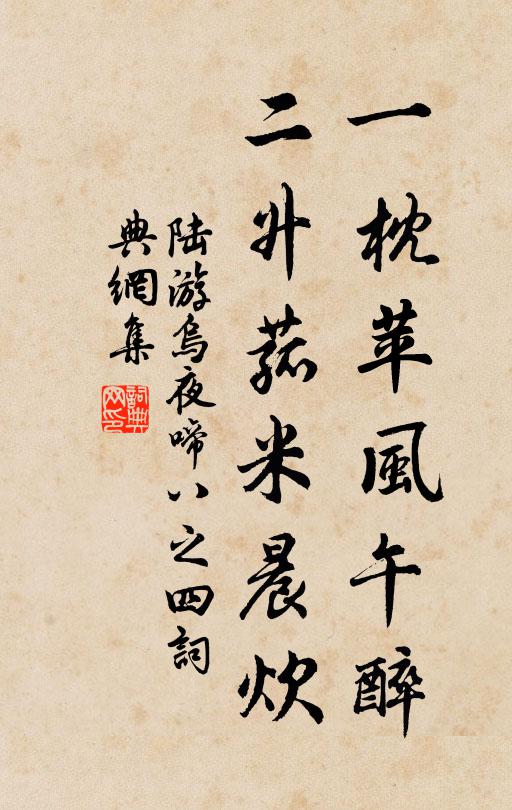 一枕苹風午醉
二升菰米晨炊
陸游烏夜啼八之四詞
典網集
詞典网印